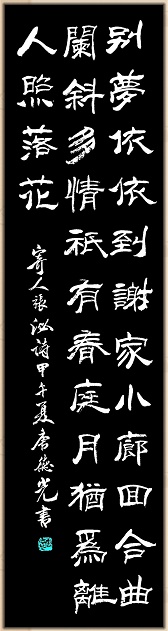 别夢依依到謝家小廊回合曲
闌斜多情祇有春庭月猶爲離
人照落花
寄人張泌詩甲午夏唐德光書